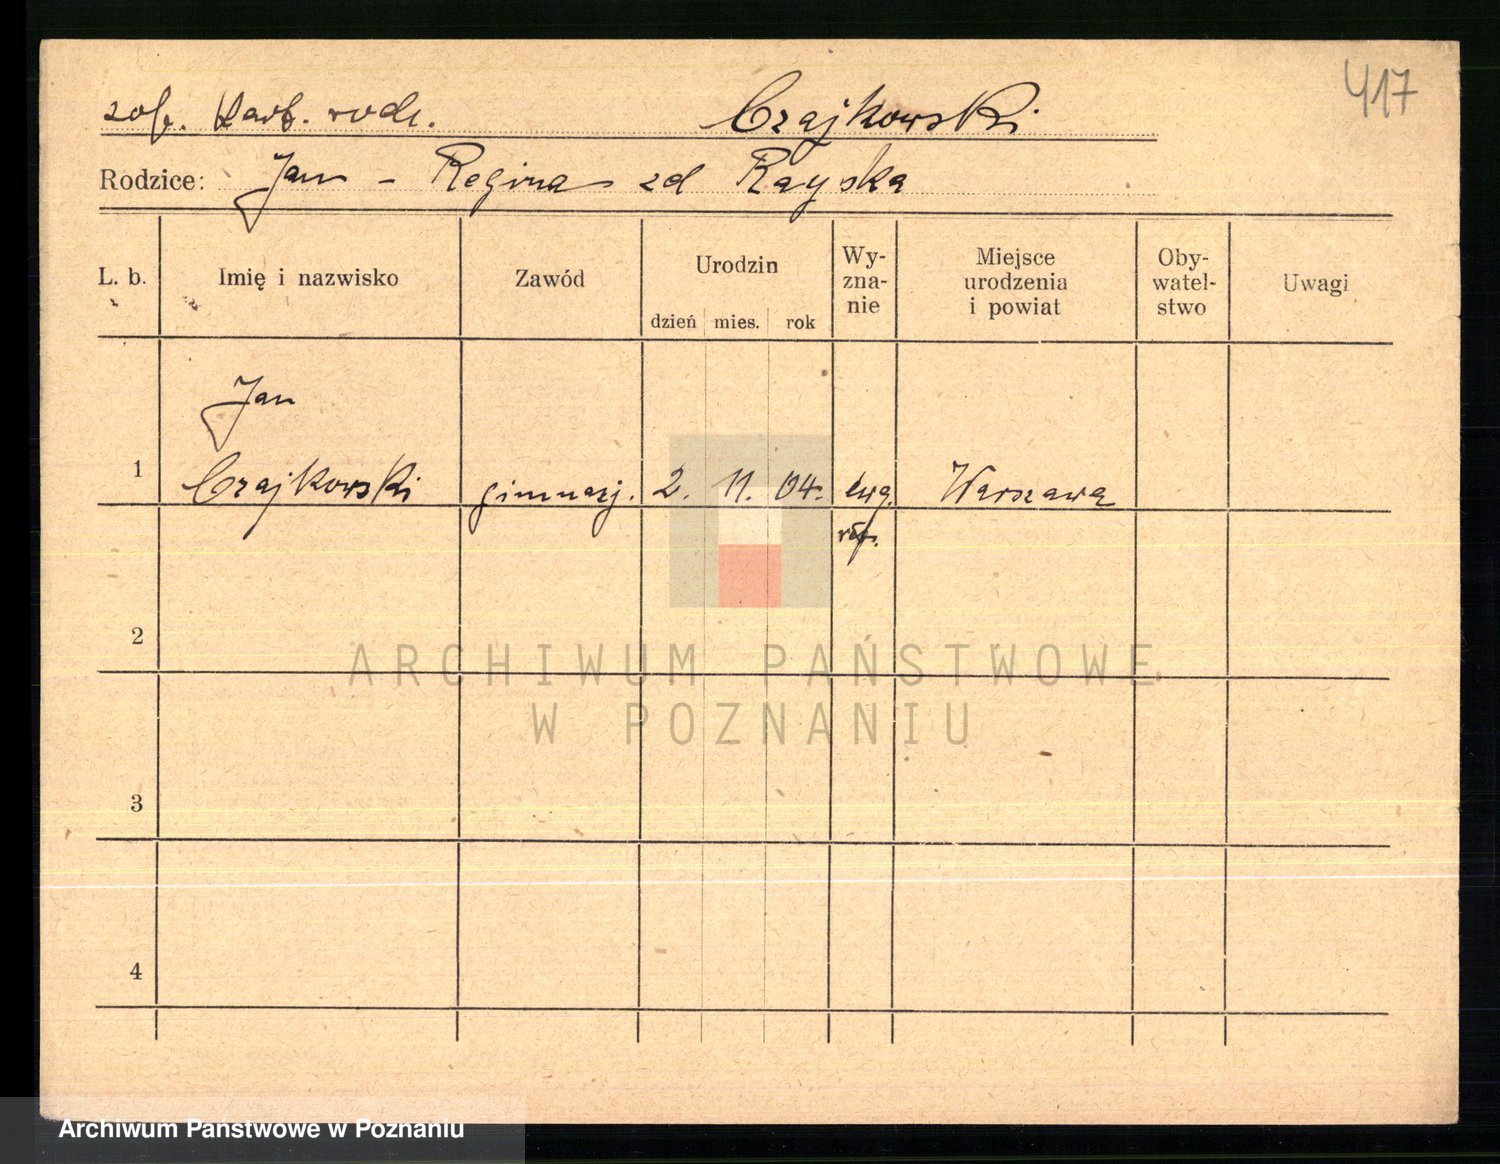 417
zob. Kart. rodz. Czajkowski
Rodzice: Jan - Regina zd Rayska
L. b. Imię i nazwisko Zawód Urodzin dzień mies. rok Wy-zna-nie Miejsce urodzenia i powiat Oby-watel-stwo Uwagi
Jan
1 Czajkowski gimnazj. 2. 11. 04. ewg. Warszawa
ref.
2
ARCHIWUM PAŃSTWOWE
W POZNANIU
3
4
Archiwum Państwowe w Poznaniu